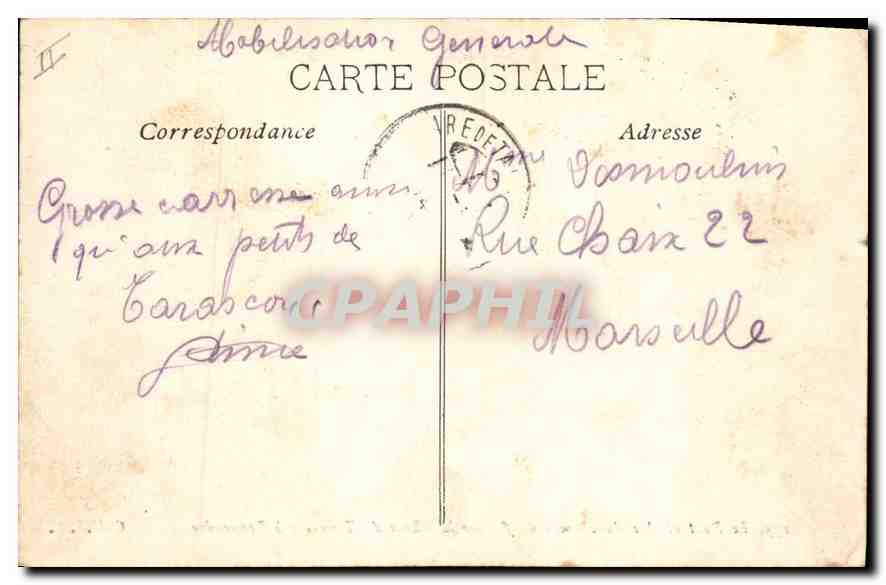 II
Mobilisation Generale
CARTE POSTALE
Correspondance
Adresse
Grosse carresse ainsi
qu'aux petits de
Tarascon
Aimée
Mme Desmoulins
Rue Chaix 22
Marseille
CPAPHIL